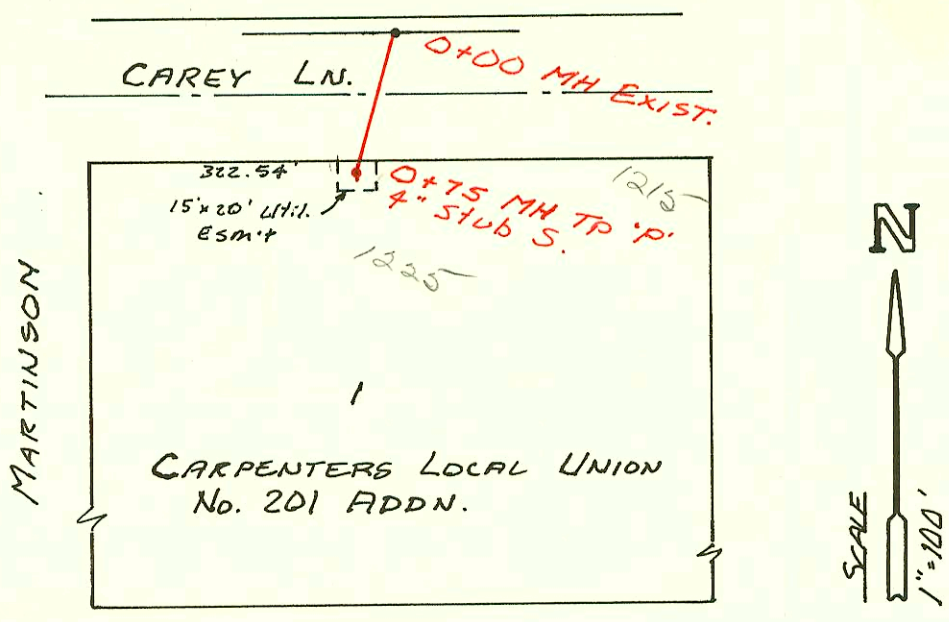 CAREY LN.
0+00 MH EXIST.
322.54'
15'x20' Util.
Esm't
0+75 MH TP 'P'
4" Stub S.
1215
1225
MARTINSON
1
CARPENTERS LOCAL UNION
No. 201 ADDN.
N
SCALE
1"=100'